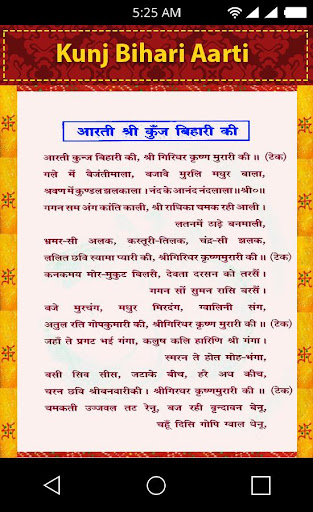 5:25 AM
Kunj Bihari Aarti
आरती श्री कुँज बिहारी की
आरती कुन्ज बिहारी की, श्री गिरिवर कृष्ण मुरारी की॥ (टेक)
गले में बैजंतीमाला, बजावे मुरलि मधुर बाला,
श्रवण में कुण्डल झलकाला। नंद के आनंद नंदलाला॥श्री०॥
गगन सम अंग कांति काली, श्री राधिका चमक रही आली।
लतनमें ठाढ़े बनमाली,
भ्रमर-सी अलक, कस्तूरी-तिलक, चंद्र-सी झलक,
ललित छवि स्यामा प्यारी की, श्री गिरिवर कृष्ण मुरारी की॥ (टेक)
कनकमय मोर-मुकुट बिलसै, देवता दरसन को तरसैं।
गगन सों सुमन रासि बरसैं।
बजे मुरचंग, मधुर मिरदंग, ग्वालिनी संग,
अतुल रति गोपकुमारी की, श्रीगिरवर कृष्ण मुरारी की॥ (टेक)
जहाँ ते प्रगट भई गंगा, कलुष कलि हारिणि श्री गंगा।
स्मरन ते होत मोह-भंगा,
बसी सिव सीस, जटाके बीच, हरै अघ कीच,
चरन छवि श्रीबनवारीकी। श्रीगिरवर कृष्णमुरारी की॥ (टेक)
चमकती उज्जवल तट रेनू, बज रही वृन्दावन बेनू,
चहूँ दिसि गोपि ग्वाल धेनू,